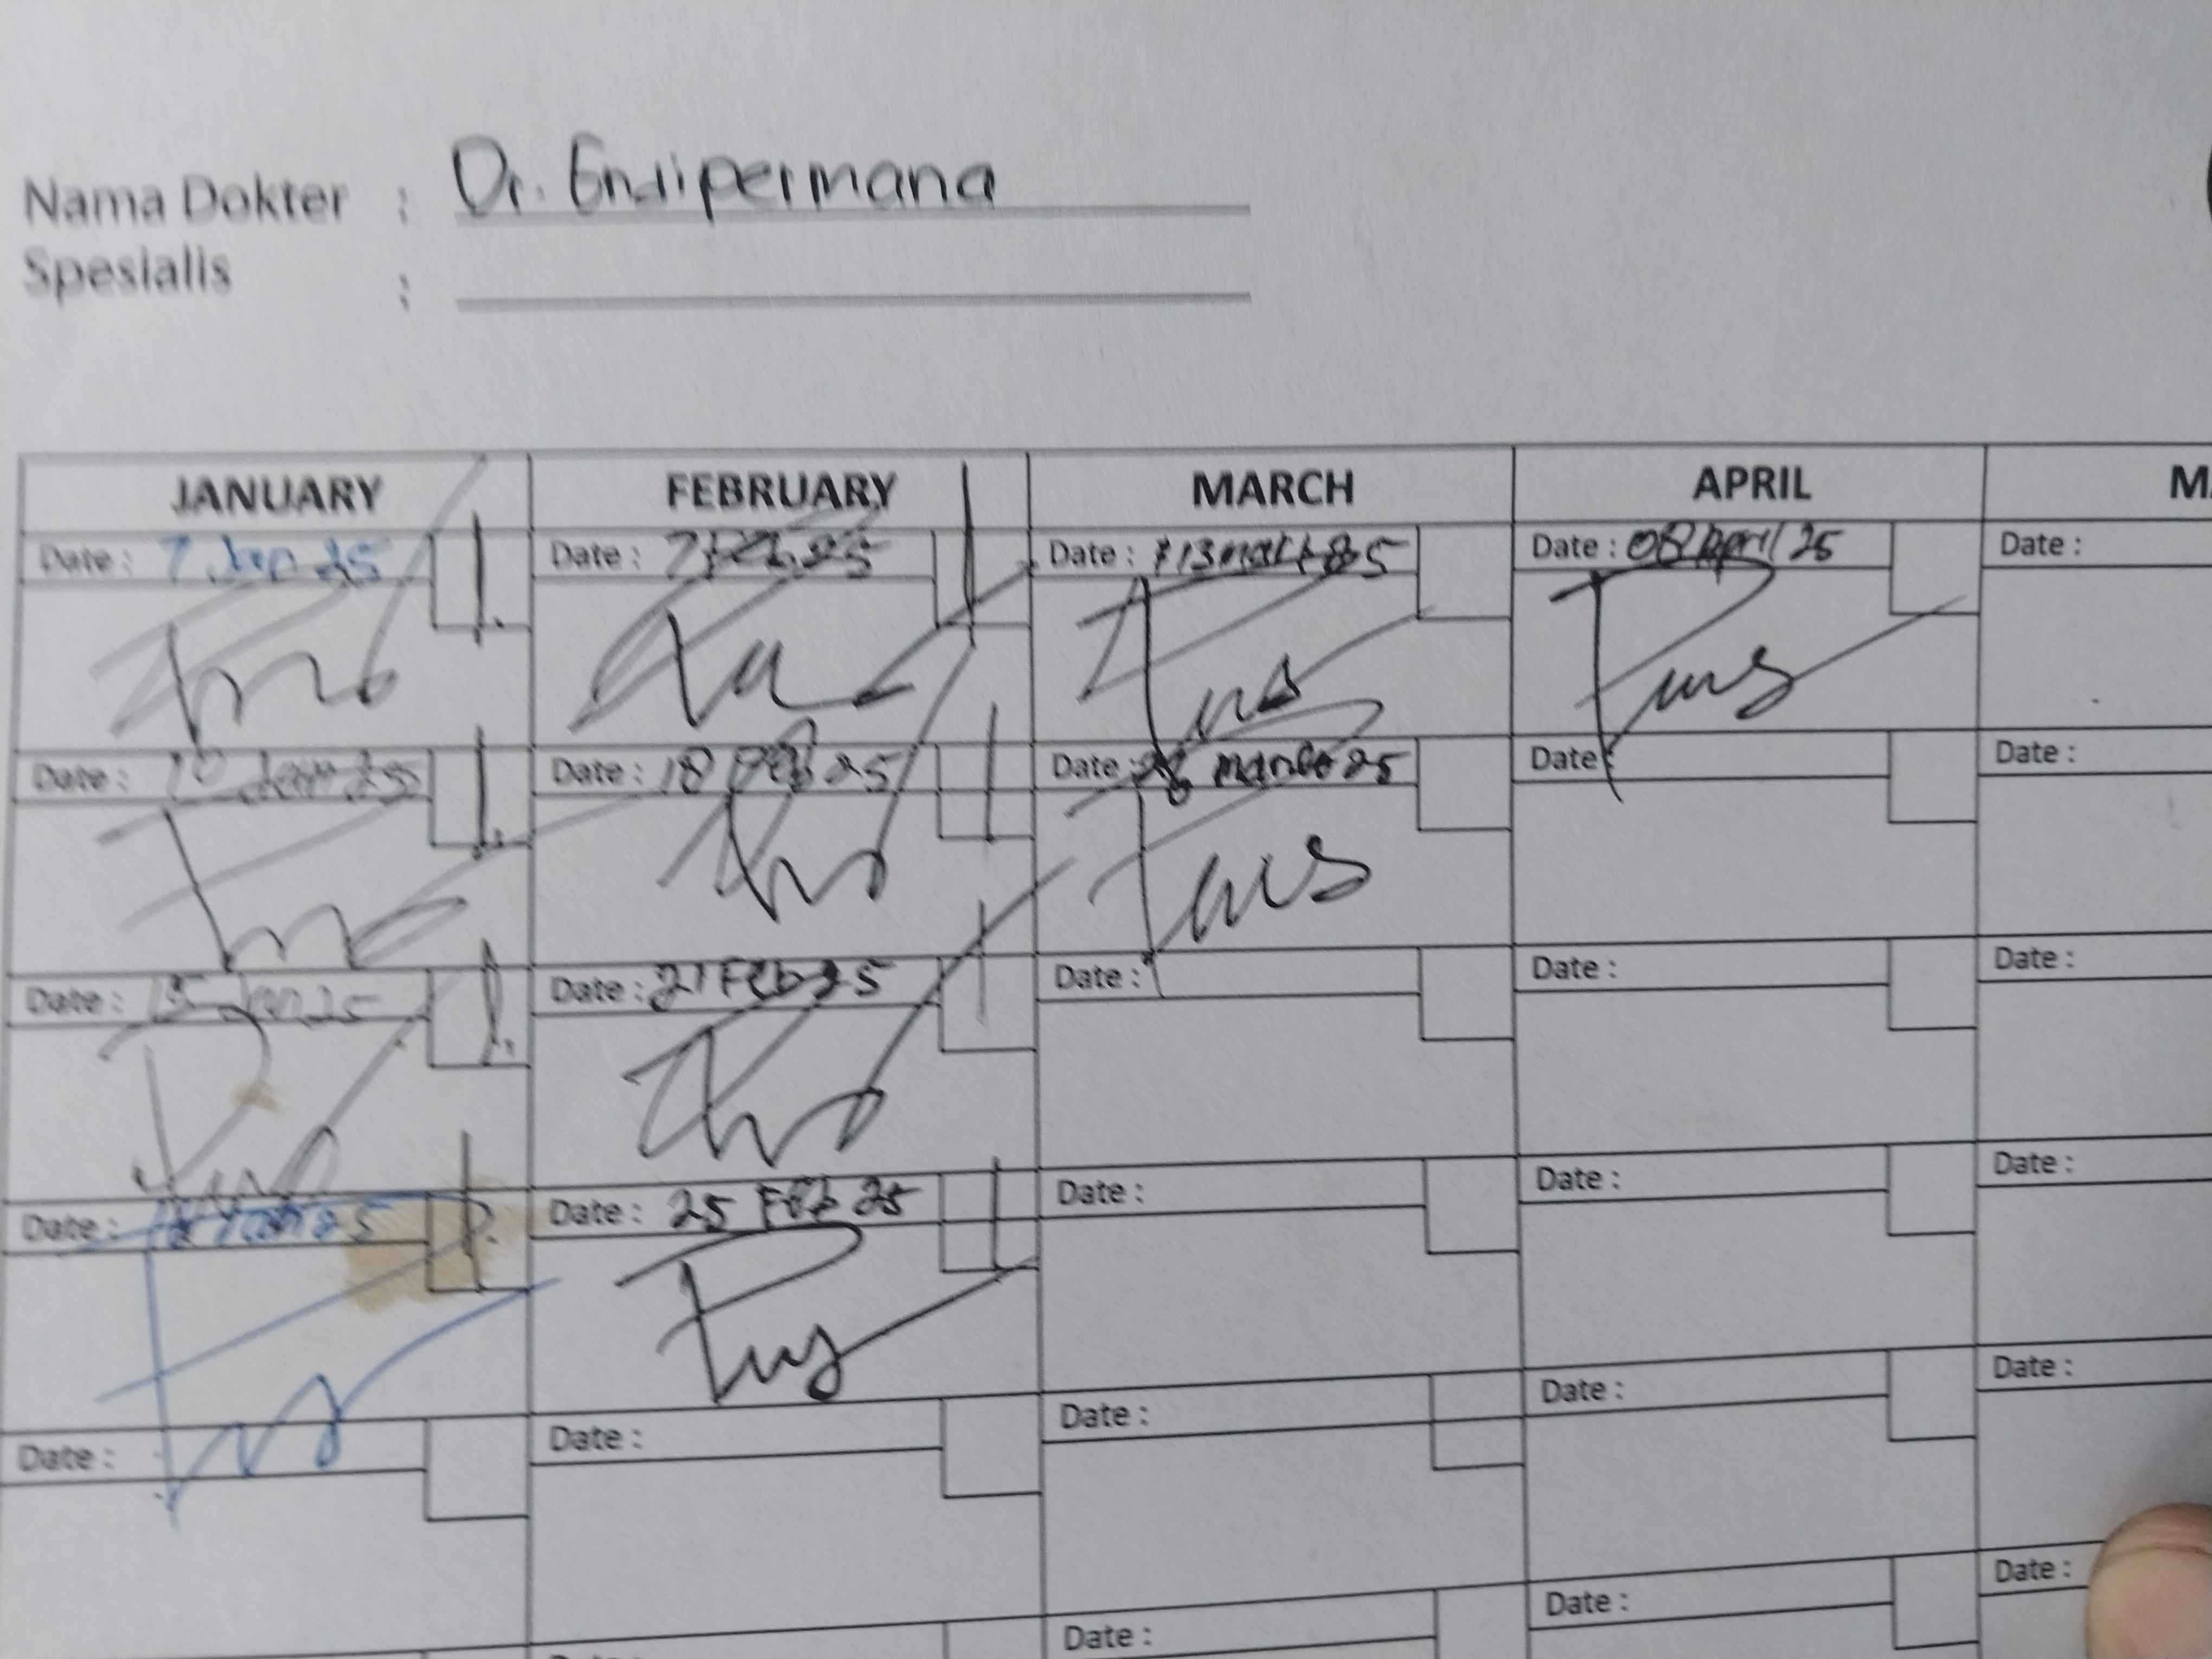 Nama Dokter : Dr. Endipermana
Spesialis :
JANUARY FEBRUARY MARCH APRIL
Date : 7 Jan 25 Date : 7 Feb 25 Date : 13 Date : 08 April 25 Date :
Date : 10 Jan 25 Date : 18 Feb 25 Date : 25 Date : Date :
Date : 15 Jan 25 Date : 21 Feb 25 Date : Date : Date :
Date : Date : 25 Feb 25 Date : Date : Date :
Date : Date : Date : Date : Date :
Date : Date : Date :